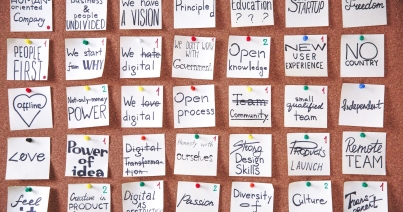 oriented
Company
business
& people
UNDIVIDED
We have
a VISION
Principle
Education
???
STARTUP
Freedom
PEOPLE
FIRST
1
We start
from WHY
We hate
digital
1
We don't work
with
Government
2
Open
knowledge
2
NEW
USER
EXPERIENCE
NO
COUNTRY
offline
Not-only-money
POWER
2
We love
digital
1
Open
process
Team
Community
1
small
qualified
team
Independent
Love
Power of
idea
1
Digital
Transformation
Honesty with
ourselves
2
Strong
Design
Skills
Products
LAUNCH
1
Remote
TEAM
1
Feel
it
Creative in
PRODUCT
2
Digital
as
1
Passion
2
Diversity
of
2
Culture
1
Transparent
1